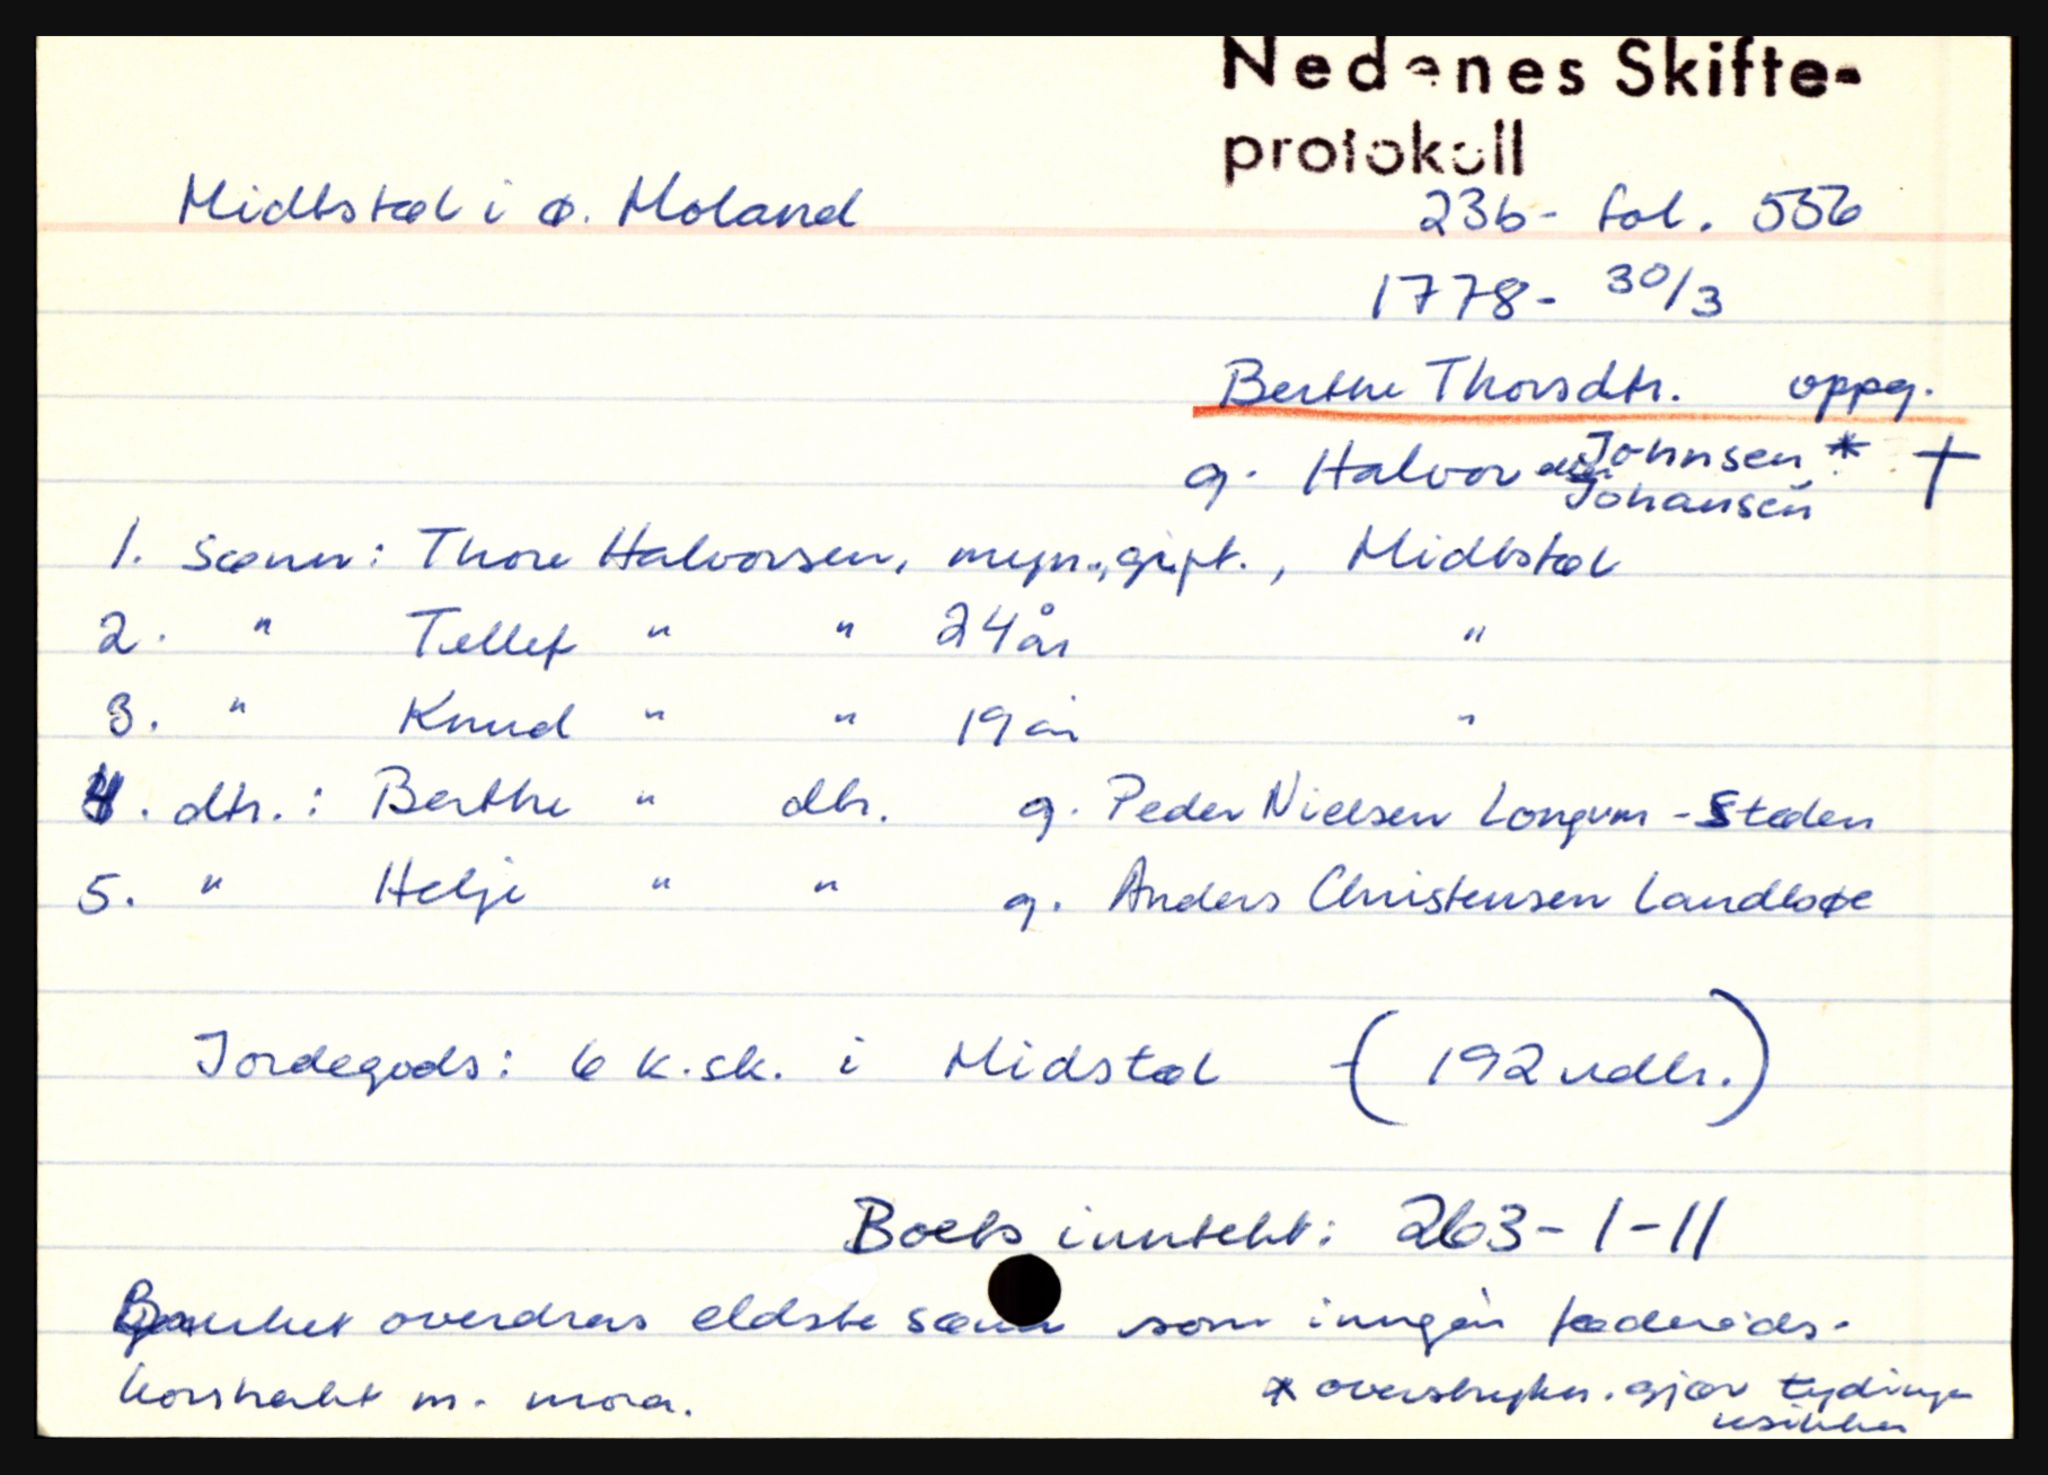 Nedenes Skifte-
protokoll
Midtstøl i ø. Moland 23b- fol. 556
1778- 30/3
Berthe Thorsdtr. oppg.
g. Halvor Johnsen * †
Johansen
1. Sønn: Thore Halvorsen, myn., gift., Midtstøl
2. " Tellef " " 24 år "
3. " Knud " " 19 år "
4. dtr.: Berthe " dtr. g. Peder Nielsen Longum - Støden
5. " Helje " " g. Anders Christensen Landbøe
Jordegods: 6 k.sk. i Midstøl (192 rdlr.)
Boets inntekt: 263-1-11
overdras eldste sønn som inngår føderåds-
kontrakt m. mora. * overstryken. gjør tydingen
usikker